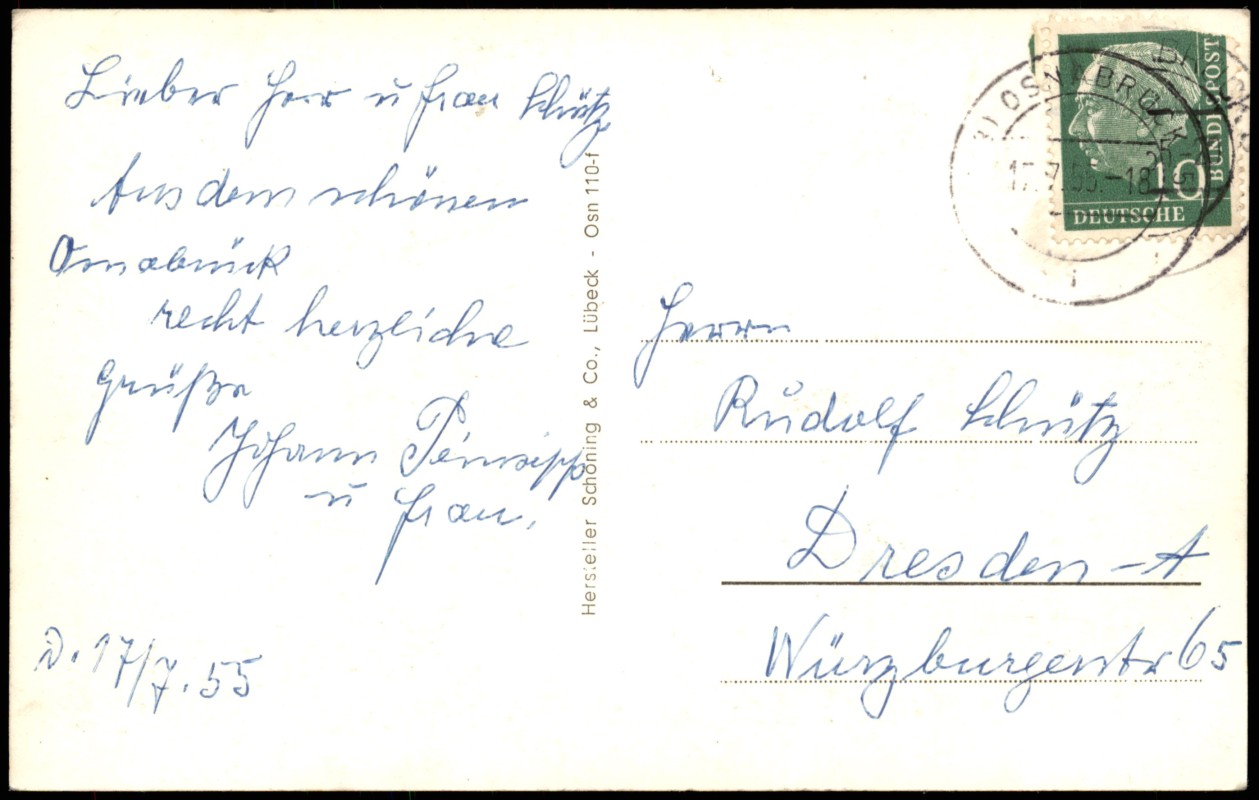 Lieber Herr u Frau Schütz
Aus dem schönen
Osnabrück
recht herzliche
Grüße
Johann
u Frau.
D. 17/7.55
Hersteller Schöning & Co., Lübeck - Osn 110-f
OSNABRÜCK
17.7.55.-18
DEUTSCHE
BUNDESPOST
10
Herrn
Rudolf Schütz
Dresden-A
Würzburgerstr 65